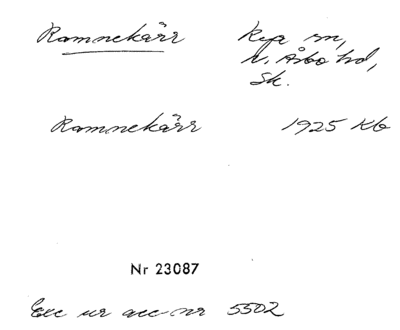 Ramnekärr Rya sn,
N. Åsbo hd,
Sk.
Ramnekärr 1925 Kb
Nr 23087
Exc ur acc nr 5502